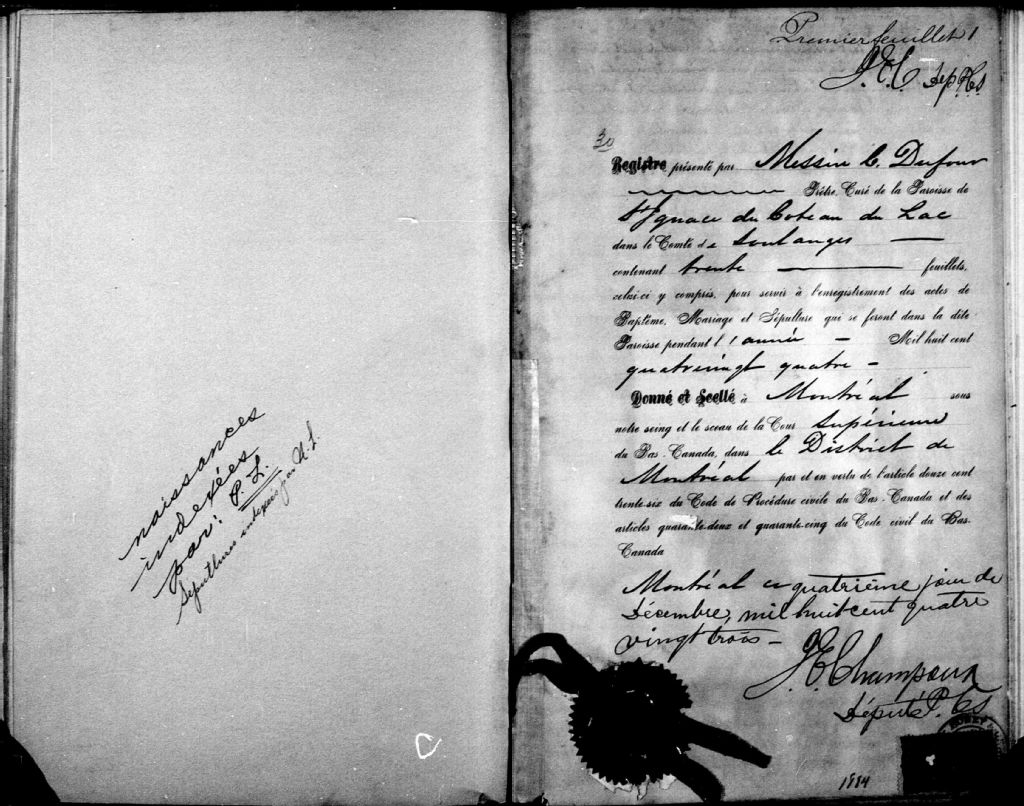 naissances
indexées
par: P. L.
Sépultures indexées par A. L.
Premier feuillet 1
J. E. C Dép P. C. S
30
Registre présenté par Messire C. Dufour
Prêtre, Curé de la Paroisse de
St Ignace du Coteau du Lac
dans le Comté de Soulanges
contenant trente feuillets,
celui-ci y compris, pour servir à l'enregistrement des actes de
Baptême, Mariage et Sépulture qui se feront dans la dite
Paroisse pendant l'année Mil huit cent
quatrevingt quatre -
Donné et Scellé à Montréal sous
notre seing et le sceau de la Cour Supérieure
du Bas-Canada, dans le District de
Montréal par et en vertu de l'article douze cent
trente-six du Code de Procédure civile du Bas-Canada et des
articles quarante-deux et quarante-cinq du Code civil du Bas-
Canada
Montréal ce quatrième jour de
Décembre, mil huit cent quatre
vingt trois -
J. E. Champoux
Député P. C. S
1884